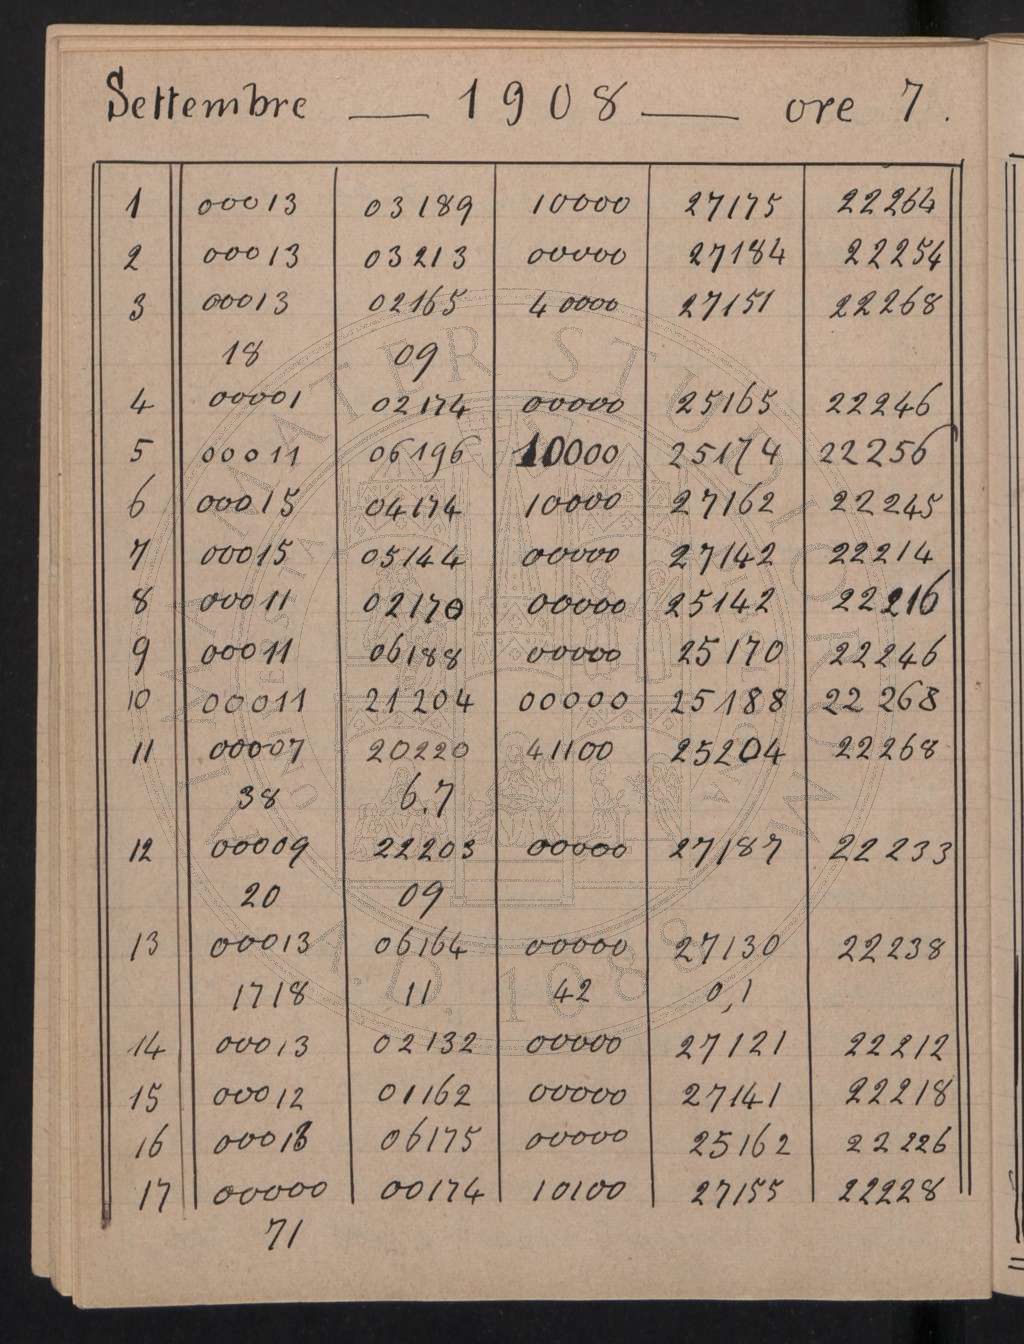 Settembre — 1908 — ore 7.
1 00013 03189 10000 27175 22264
2 00013 03213 00000 27184 22254
3 00013 02165 40000 27151 22268
18 09
4 00001 02174 00000 25165 22246
5 00011 06196 10000 25174 22256
6 00015 04174 10000 27162 22245
7 00015 05144 00000 27142 22214
8 00011 02170 00000 25142 22216
9 00011 06188 00000 25170 22246
10 00011 21204 00000 25188 22268
11 00007 20220 41100 25204 22268
38 6.7
12 00009 22203 00000 27187 22233
20 09
13 00013 06164 00000 27130 22238
1718 11 42 0,1
14 00013 02132 00000 27121 22212
15 00012 01162 00000 27141 22218
16 00013 06175 00000 25162 22226
17 00000 00174 10100 27155 22228
71
ALMA MATER STUDIORUM
A.D. 1088